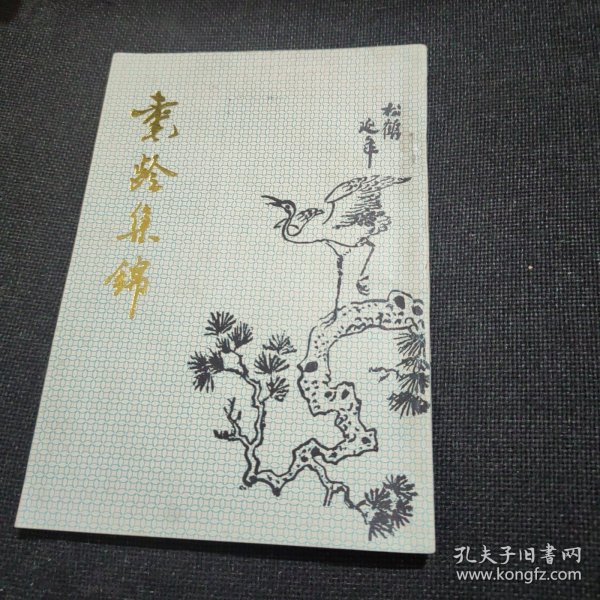 龄集锦
松鹤
延年
孔夫子旧书网
www.kongfz.com